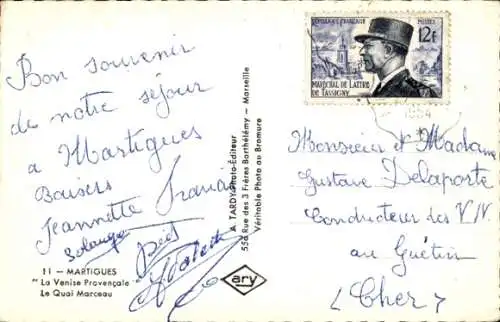 Bon souvenir
de notre séjour
a Martigues
Baisers
Jeannette Francis
Solange
11 — MARTIGUES
"La Venise Provençale"
Le Quai Marceau
A. TARDY Photo-Editeur
55a Rue des 3 Frères Barthélémy - Marseille
Véritable Photo au Bromure
ary
REPUBLIQUE FRANÇAISE
POSTES
12F
MARÉCHAL DE LATTRE
DE TASSIGNY
1954
Monsieur et Madame
Gustave Delaporte
Conducteur des V.N
au Guétin
(Cher)